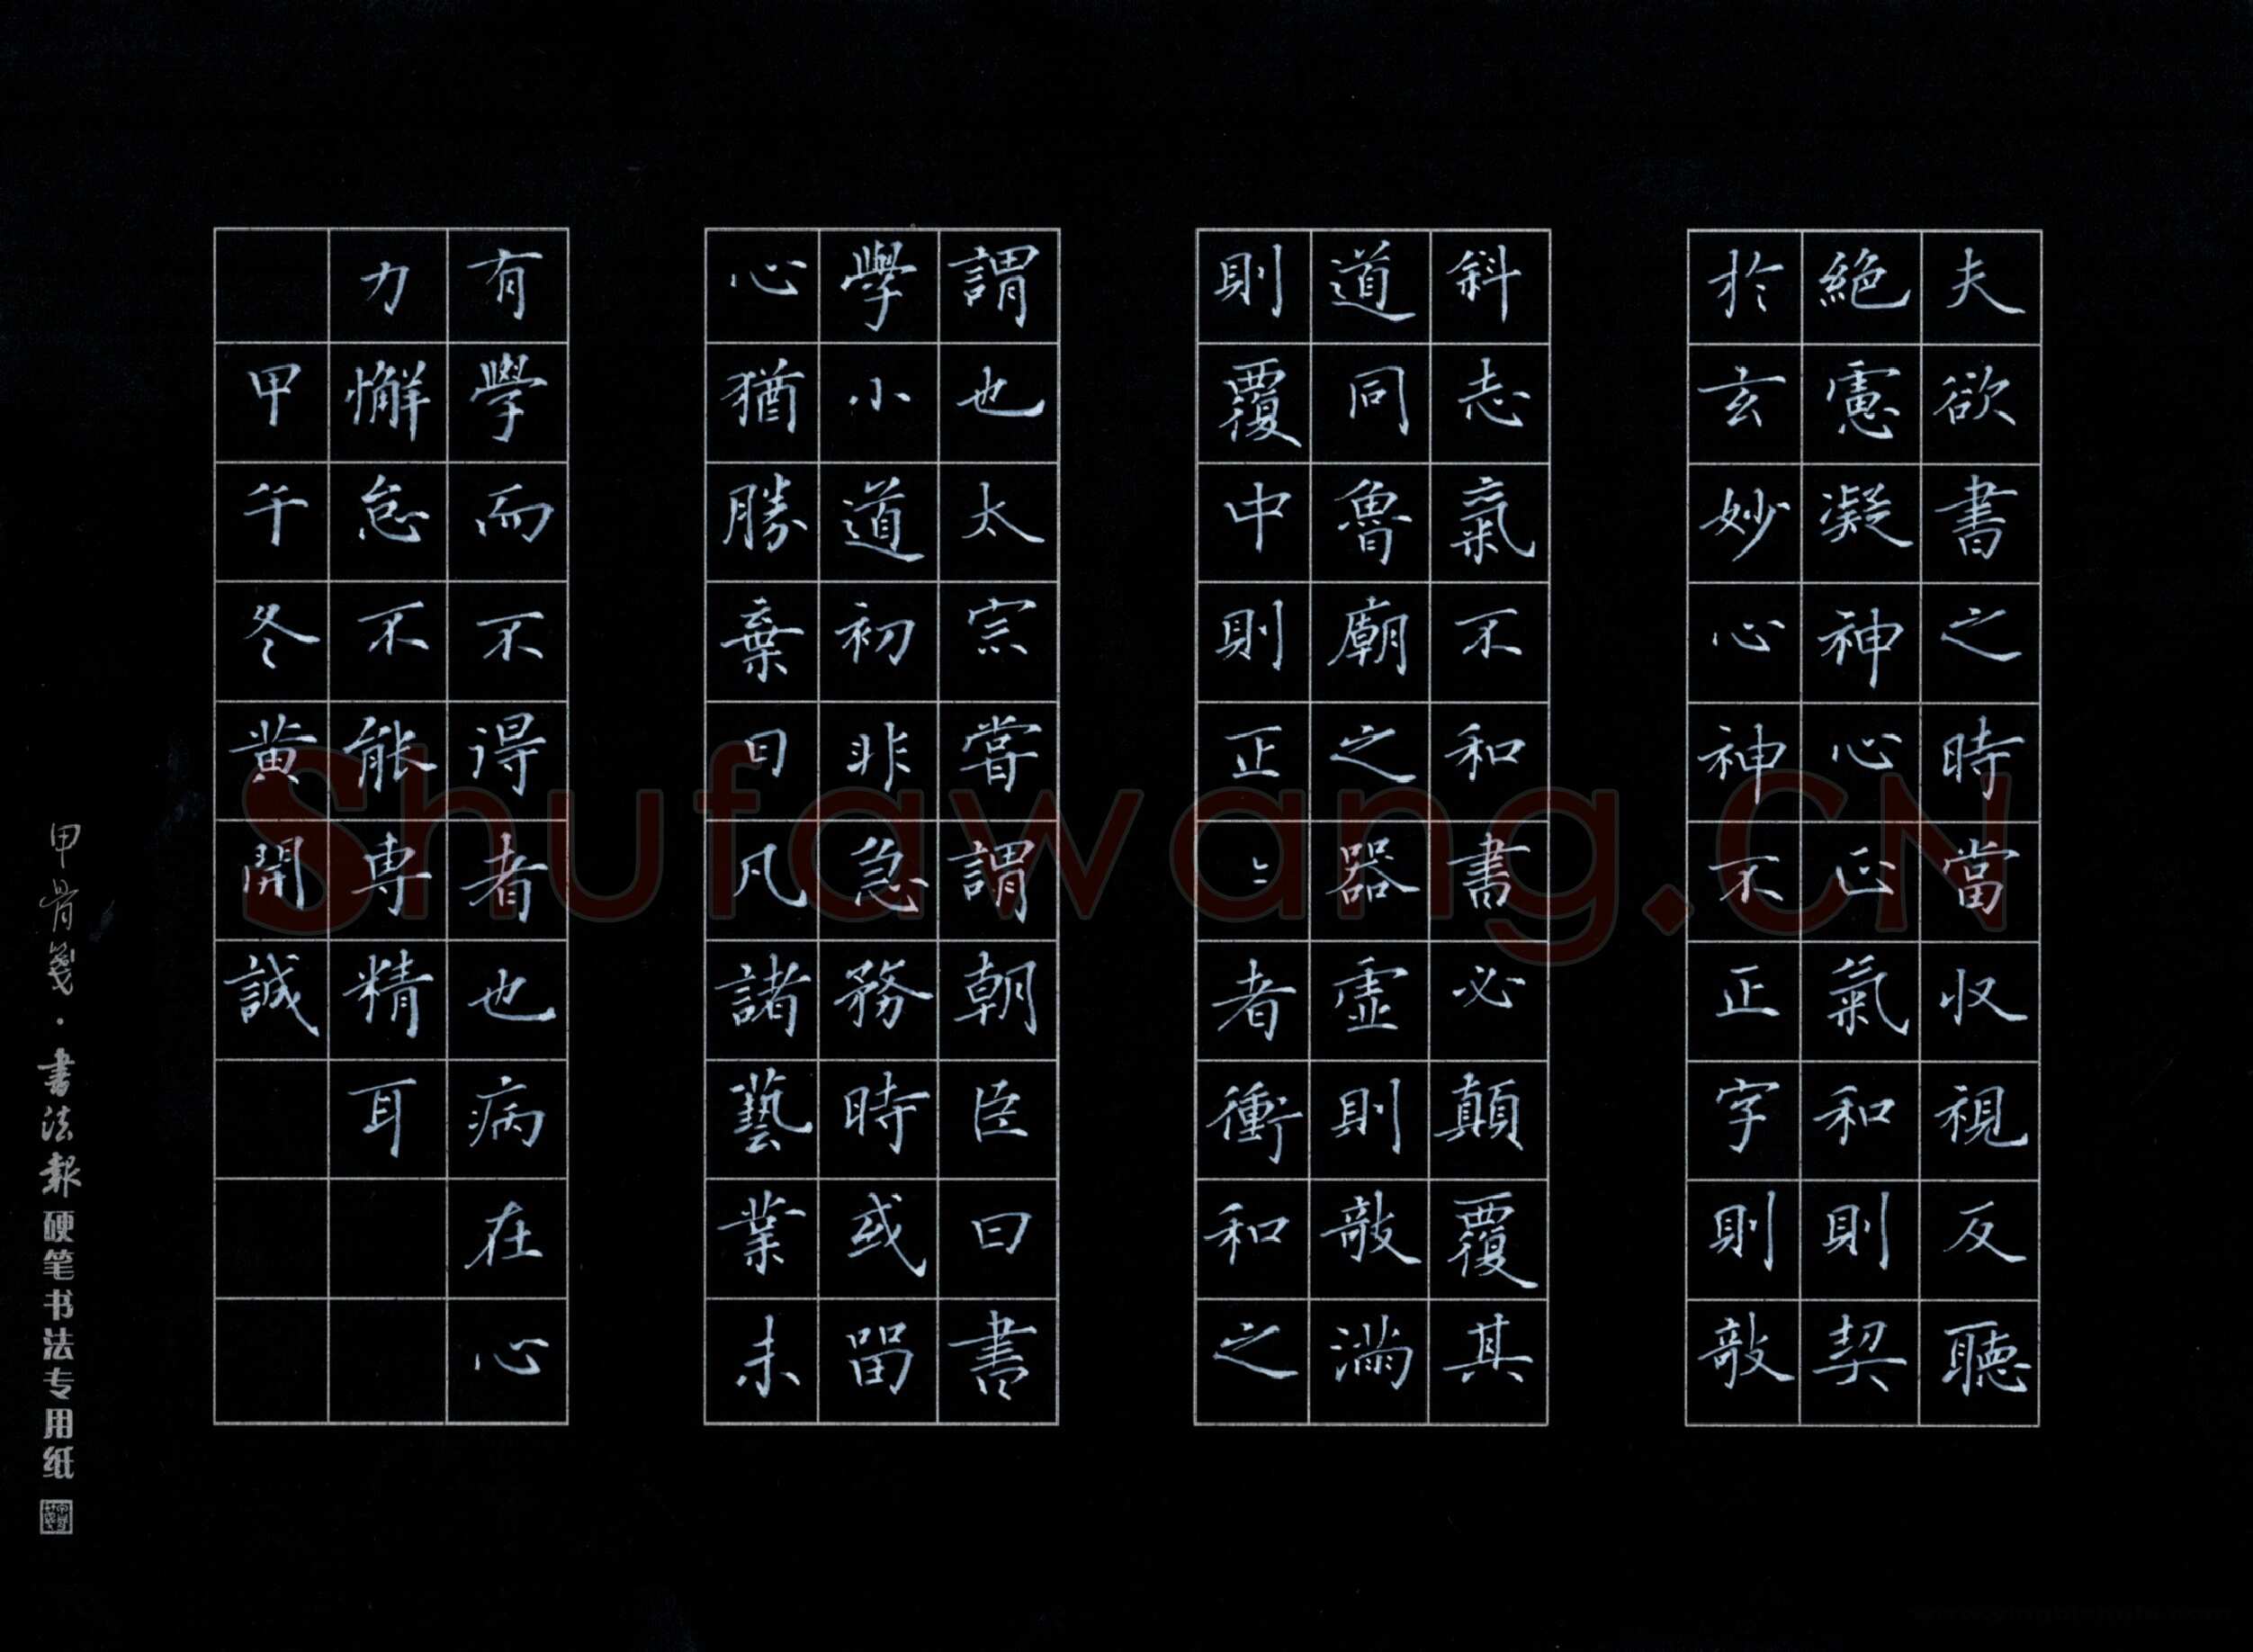 夫欲書之時當収視反聽
絕慮凝神心正氣和則契
於玄妙心神不正字則敧
斜志氣不和書必顛覆其
道同魯廟之器虛則敧滿
則覆中則正〻者衝和之
謂也太宗嘗謂朝臣曰書
學小道初非急務時或留
心猶勝棄日凡諸藝業未
有學而不得者也病在心
力懈怠不能專精耳
甲午冬黄開誠
甲骨箋·書法報硬笔书法专用纸
Shufawang.CN